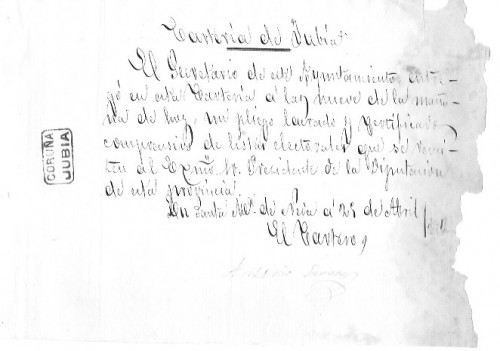 Cartería de Jubia
El Secretario de este Ayuntamiento entre-
gó en esta Cartería á las nueve de la maña-
na de hoy, un pliego lacrado y certificado
comprensivo de listas electorales que se remi-
ten al Exmo Sr. Precidente de la Diputación
de esta provincia.
En Santa Mª de Neda á 29 de Abril
El Cartero,
Antonio
CORUÑA
JUBIA